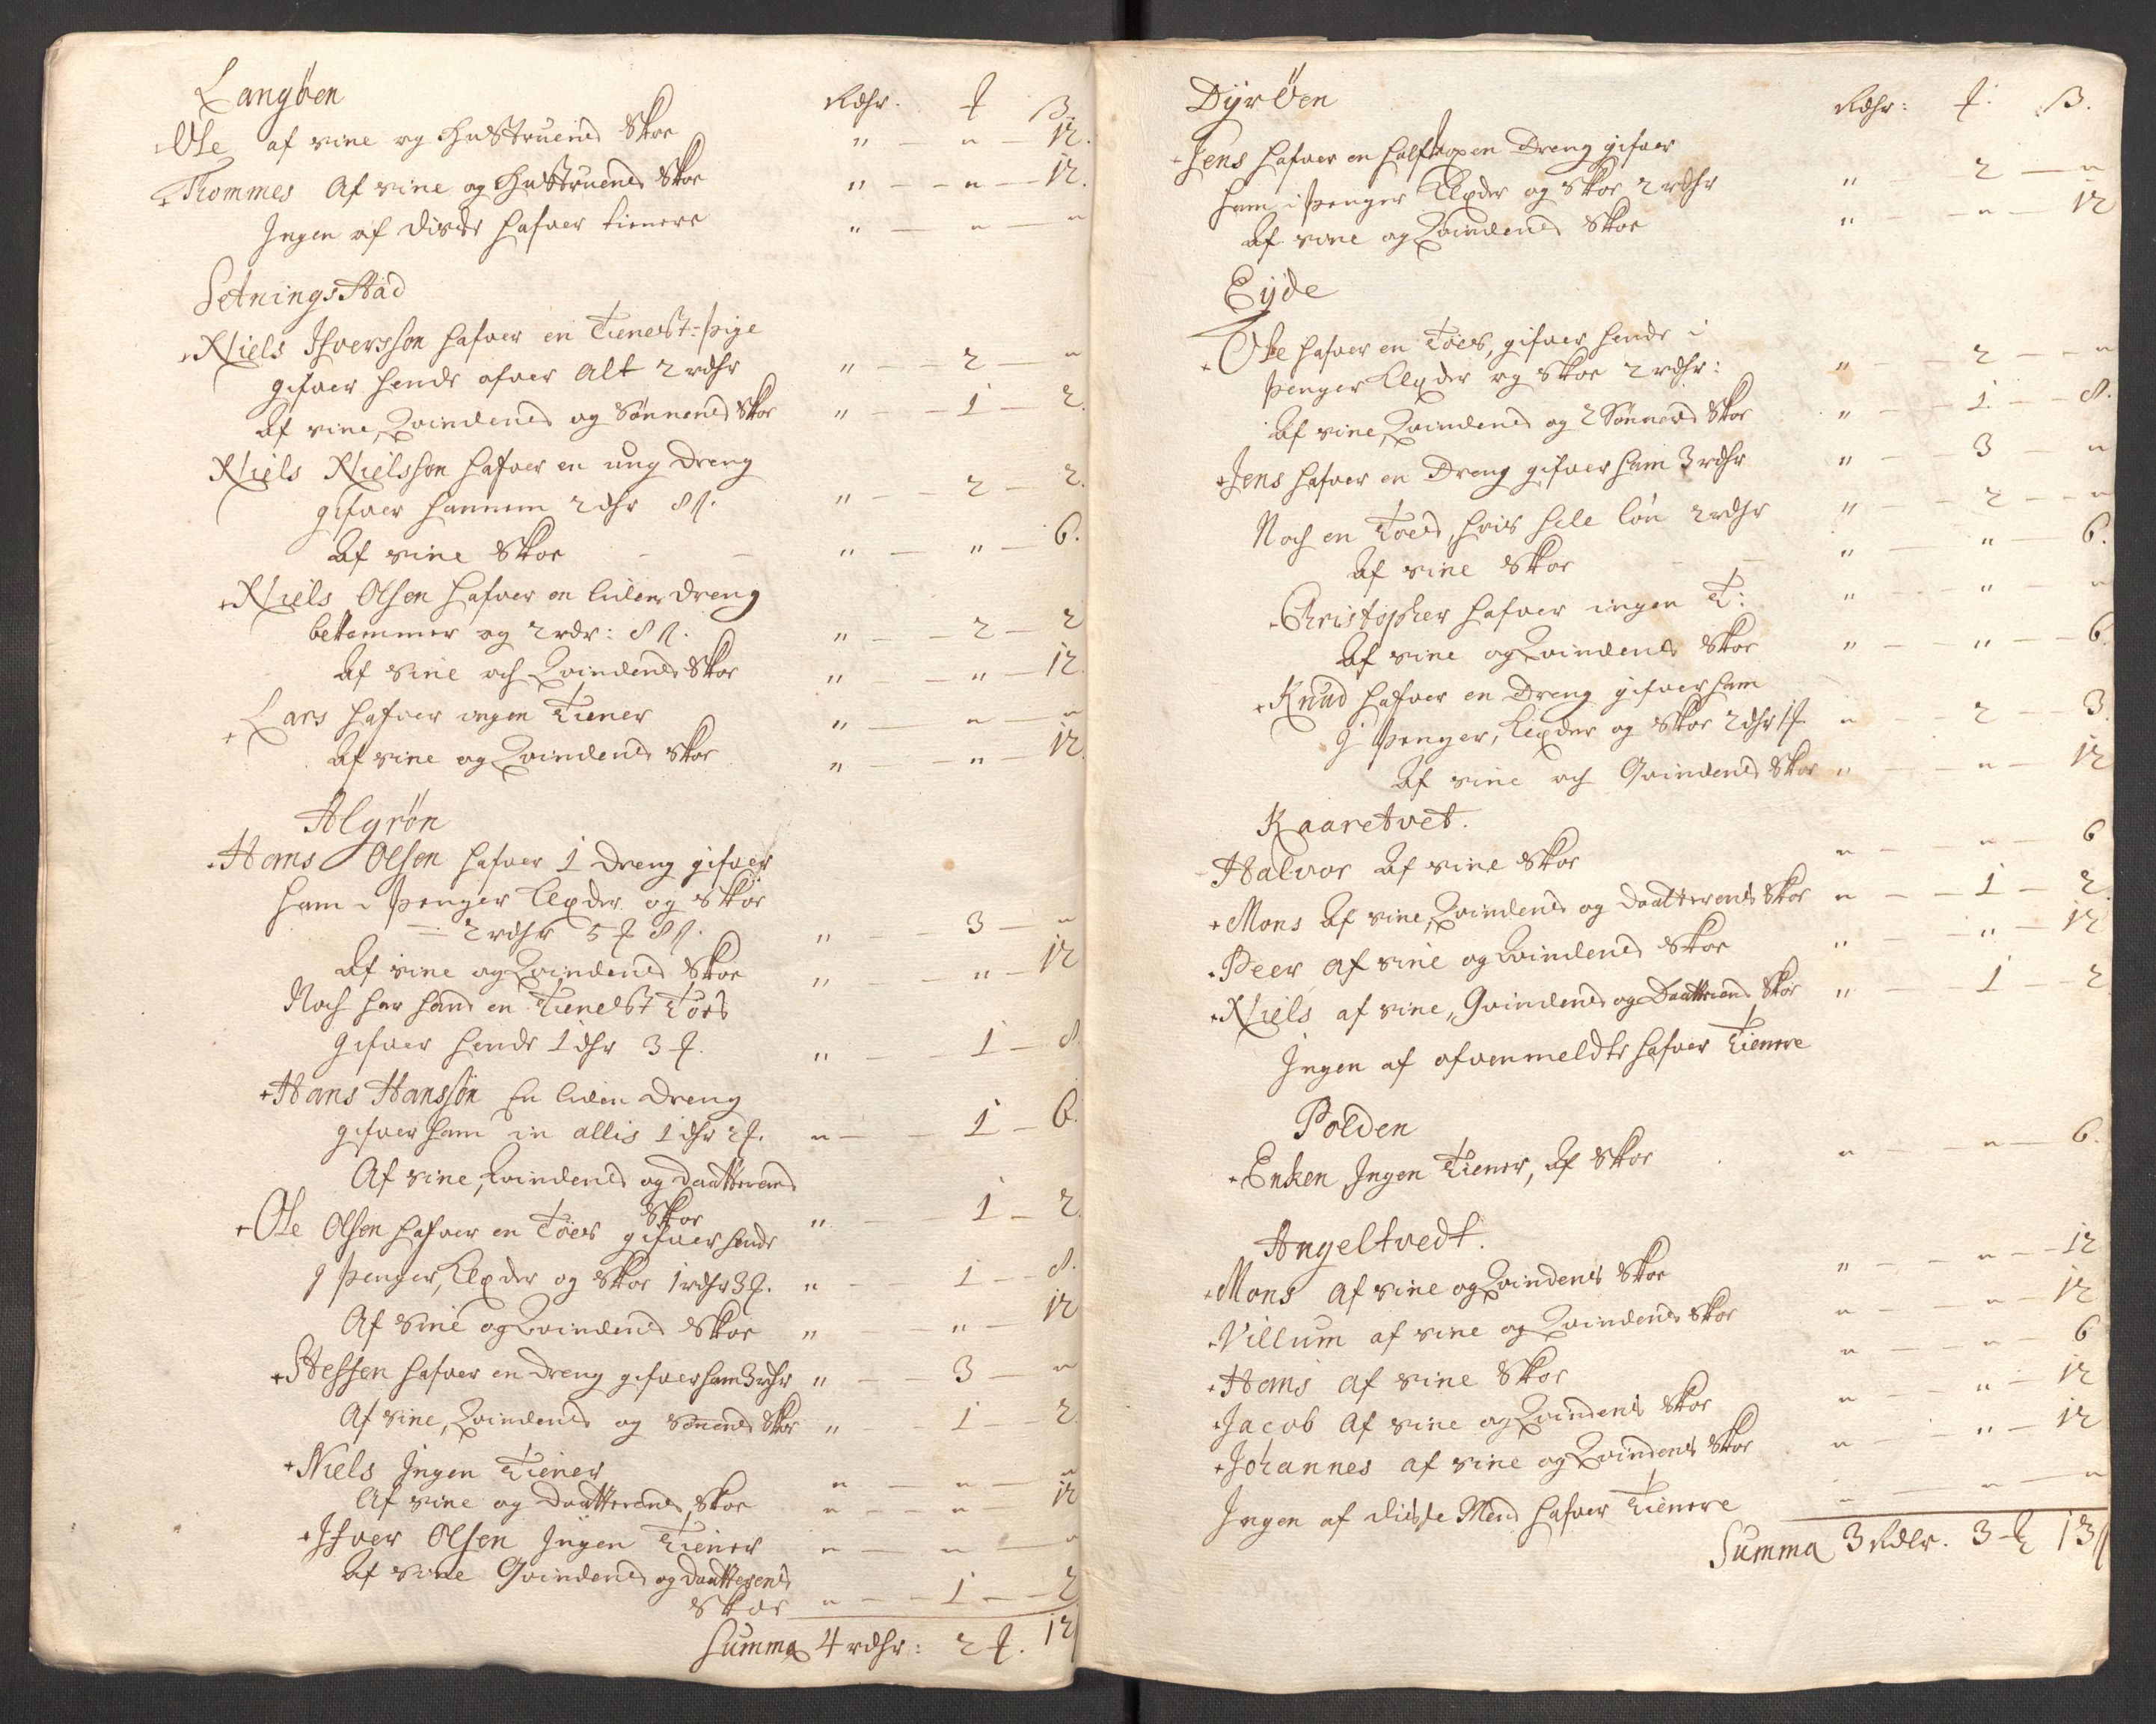 Langöen Rdhr. ƒ ß.
Ole af sine og Hustruens Skoe " — " — 12.
Thommes Af sine og Hustruens Skoe " — " — 12.
Ingen af disse hafver tienere " — " — "
SetningsStad
Niels Ifversson hafver en Tienest-pige
gifver hende ofver Alt 2 rdhr " — 2 — "
Af sine, Qvindens og Sönnens Skoe " — 1 — 2.
Niels Nielsson hafver en ung dreng
gifver hannem 2 dhr 8 ß. " — 2 — 2.
Af sine Skoe " — " — 6.
Niels Olsen hafver en liden dreng
bekommer og 2 rdr: 8 ß. " — 2 — 2
Af sine och Qvindens Skoe " — " — 12.
Lars hafver ingen Tiener " — " — "
Af sine og Qvindens Skoe " — " — 12.
Algrön
Hans Olsen hafver 1 dreng gifver
ham i penger Klæder og Skoe
2 rdhr 5 ƒ 8 ß. " — 3 — "
Af sine og Qvindens Skoe " — " — 12
Noch har hand en Tienest Töes
gifver hende 1 dhr 3 ƒ. " — 1 — 8
Hans Hansson En liden dreng
gifver ham in allis 1 dhr 2 ƒ. " — 1 — 6.
Af sine, Qvindens og daatterens
Skoe " — 1 — 2
Ole Olsen hafver en Töes gifver hende
I penger, Klæder og Skoe 1 rdhr 3 ƒ. " — 1 — 8.
Af Sine og Qvindens Skoe " — " — 12
Steffen hafver en dreng gifver ham 3 rdhr " — 3 — "
Af sine, Qvindens og sönnens Skoe " — 1 — 2.
Niels Ingen Tiener " — " — "
Af sine og daatterens Skoe " — " — 12
Ifver Olsen Ingen Tiener " — " — "
Af sine Qvindens og daatterens
Skoe " — 1 — 2
Summa 4 rdhr: 2 ƒ. 12 ß
Dyröen Rdhr: ƒ. ß.
Jens hafver en halfvoxen Dreng gifver
ham i penger Klæder og Skoe 2 rdhr " — 2 — "
Af sine og Qvindens Skoe " — " — 12
Eyde
Ole hafver en Töes, gifver hende i
penger Klæder og Skoe 2 rdhr: " — 2 — "
Af sine, Qvindens og 2 Sönners Skoe " — 1 — 8.
Jens hafver en Dreng gifver ham 3 rdhr " — 3 — "
Noch en Töes, hvis hele lön 2 rdhr " — 2 — "
Af sine Skoe " — " — 6.
Christopher hafver ingen T: " — " — "
Af sine og Qvindens Skoe " — " — 6.
Knud hafver en Dreng gifver ham
I penger, Klæder og Skoe 2 dhr 1 ƒ. " — 2 — 3.
Af sine och Qvindens Skoe " — " — 12
Kaaretvet.
Halvor Af sine Skoe " — " — 6
Mons Af sine, Qvindens og daatterens Skoe " — 1 — 2.
Peer Af sine og Qvindens Skoe " — " — 12
Niels af sine, Qvindens og Daatterens Skoe " — 1 — 2
Ingen af ofvenmeldte hafver Tienere
Polden
Enken Ingen Tiener, Af Skoe " — " — 6.
Angeltvedt.
Mons Af sine og Qvindens Skoe " — " — 12
Villum af sine og Qvindens Skoe " — " — 12
Hans Af sine Skoe " — " — 6
Jacob Af sine og Qvindens Skoe " — " — 12
Johannes af sine og Qvindens Skoe " — " — 12
Ingen af disse Mend hafver Tienere " — " — "
Summa 3 Rdlr. 3 ƒ 13 ß